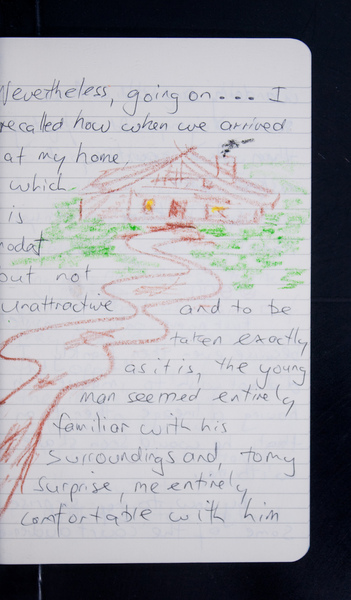 Nevertheless, going on... I
recalled how when we arrived
at my home,
which
is
modat
but not
unattractive and to be
taken exactly
as it is, the young
man seemed entirely
familiar with his
surroundings and, to my
surprise, me entirely
comfortable with him